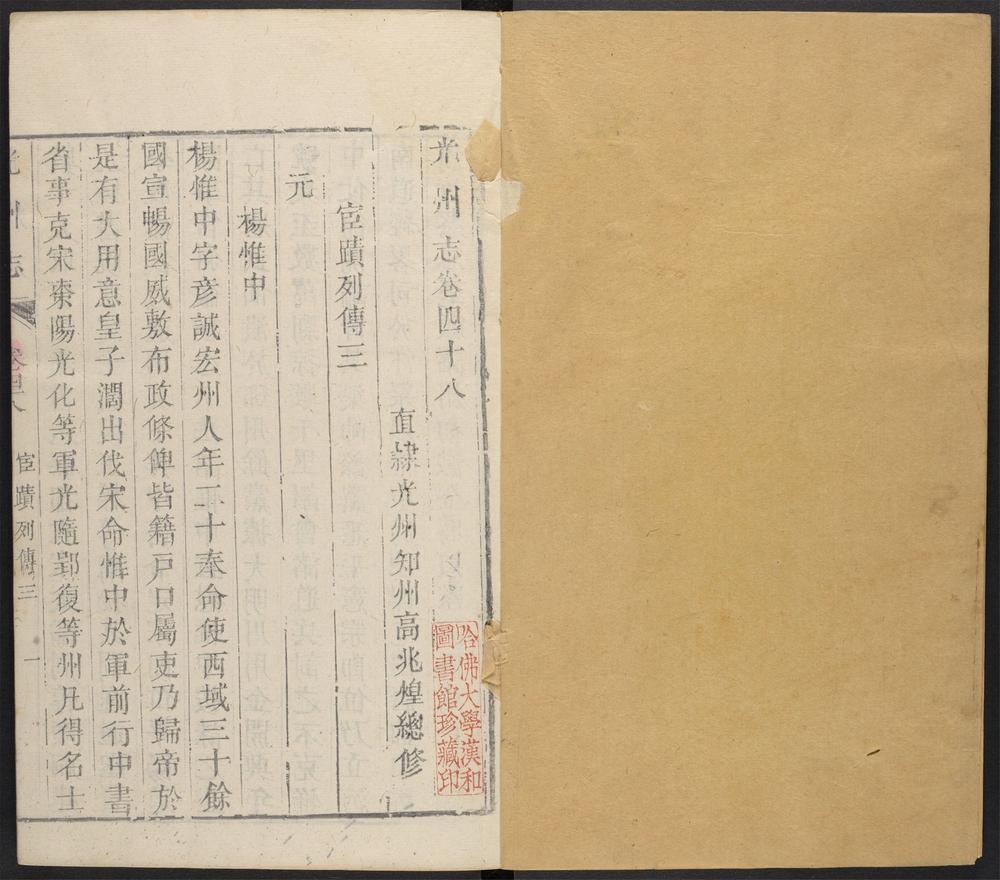 光州志卷四十八
直隸光州知州高兆煌總修
宦蹟列傳三
元
楊惟中
楊惟中字彥誠宏州人年二十奉命使西域三十餘
國宣暢國威敷布政條俾皆籍戶口屬吏乃歸帝於
是有大用意皇子濶出伐宋命惟中於軍前行中書
省事克宋棗陽光化等軍光隨郢復等州凡得名士
光州志
卷四十八
宦蹟列傳三
一
哈佛大學漢和
圖書館珍藏印